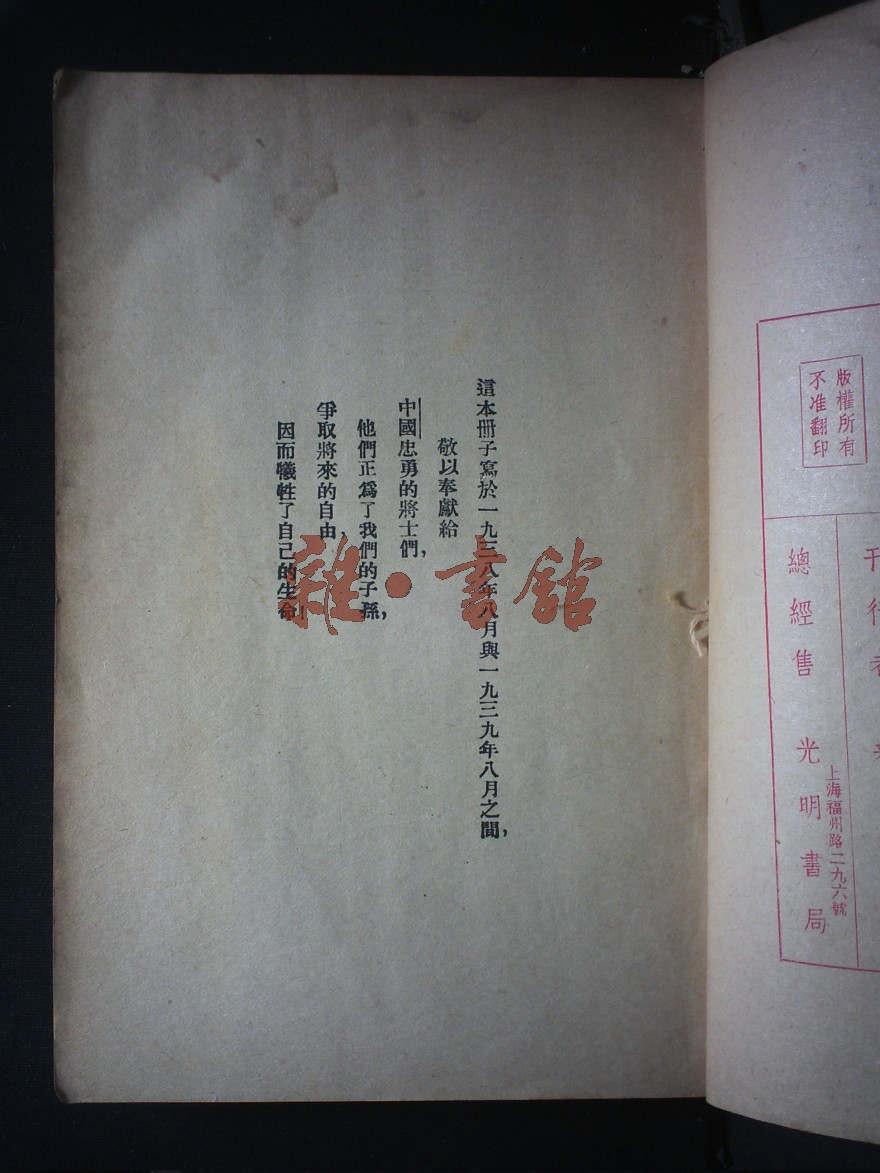 這本冊子寫於一九三八年八月與一九三九年八月之間，
敬以奉獻給
中國忠勇的將士們，
他們正爲了我們的子孫，
爭取將來的自由，
因而犧牲了自己的生命！
雜·書館
版權所有
不准翻印
刊行者
總經售 光明書局
上海福州路二九六號